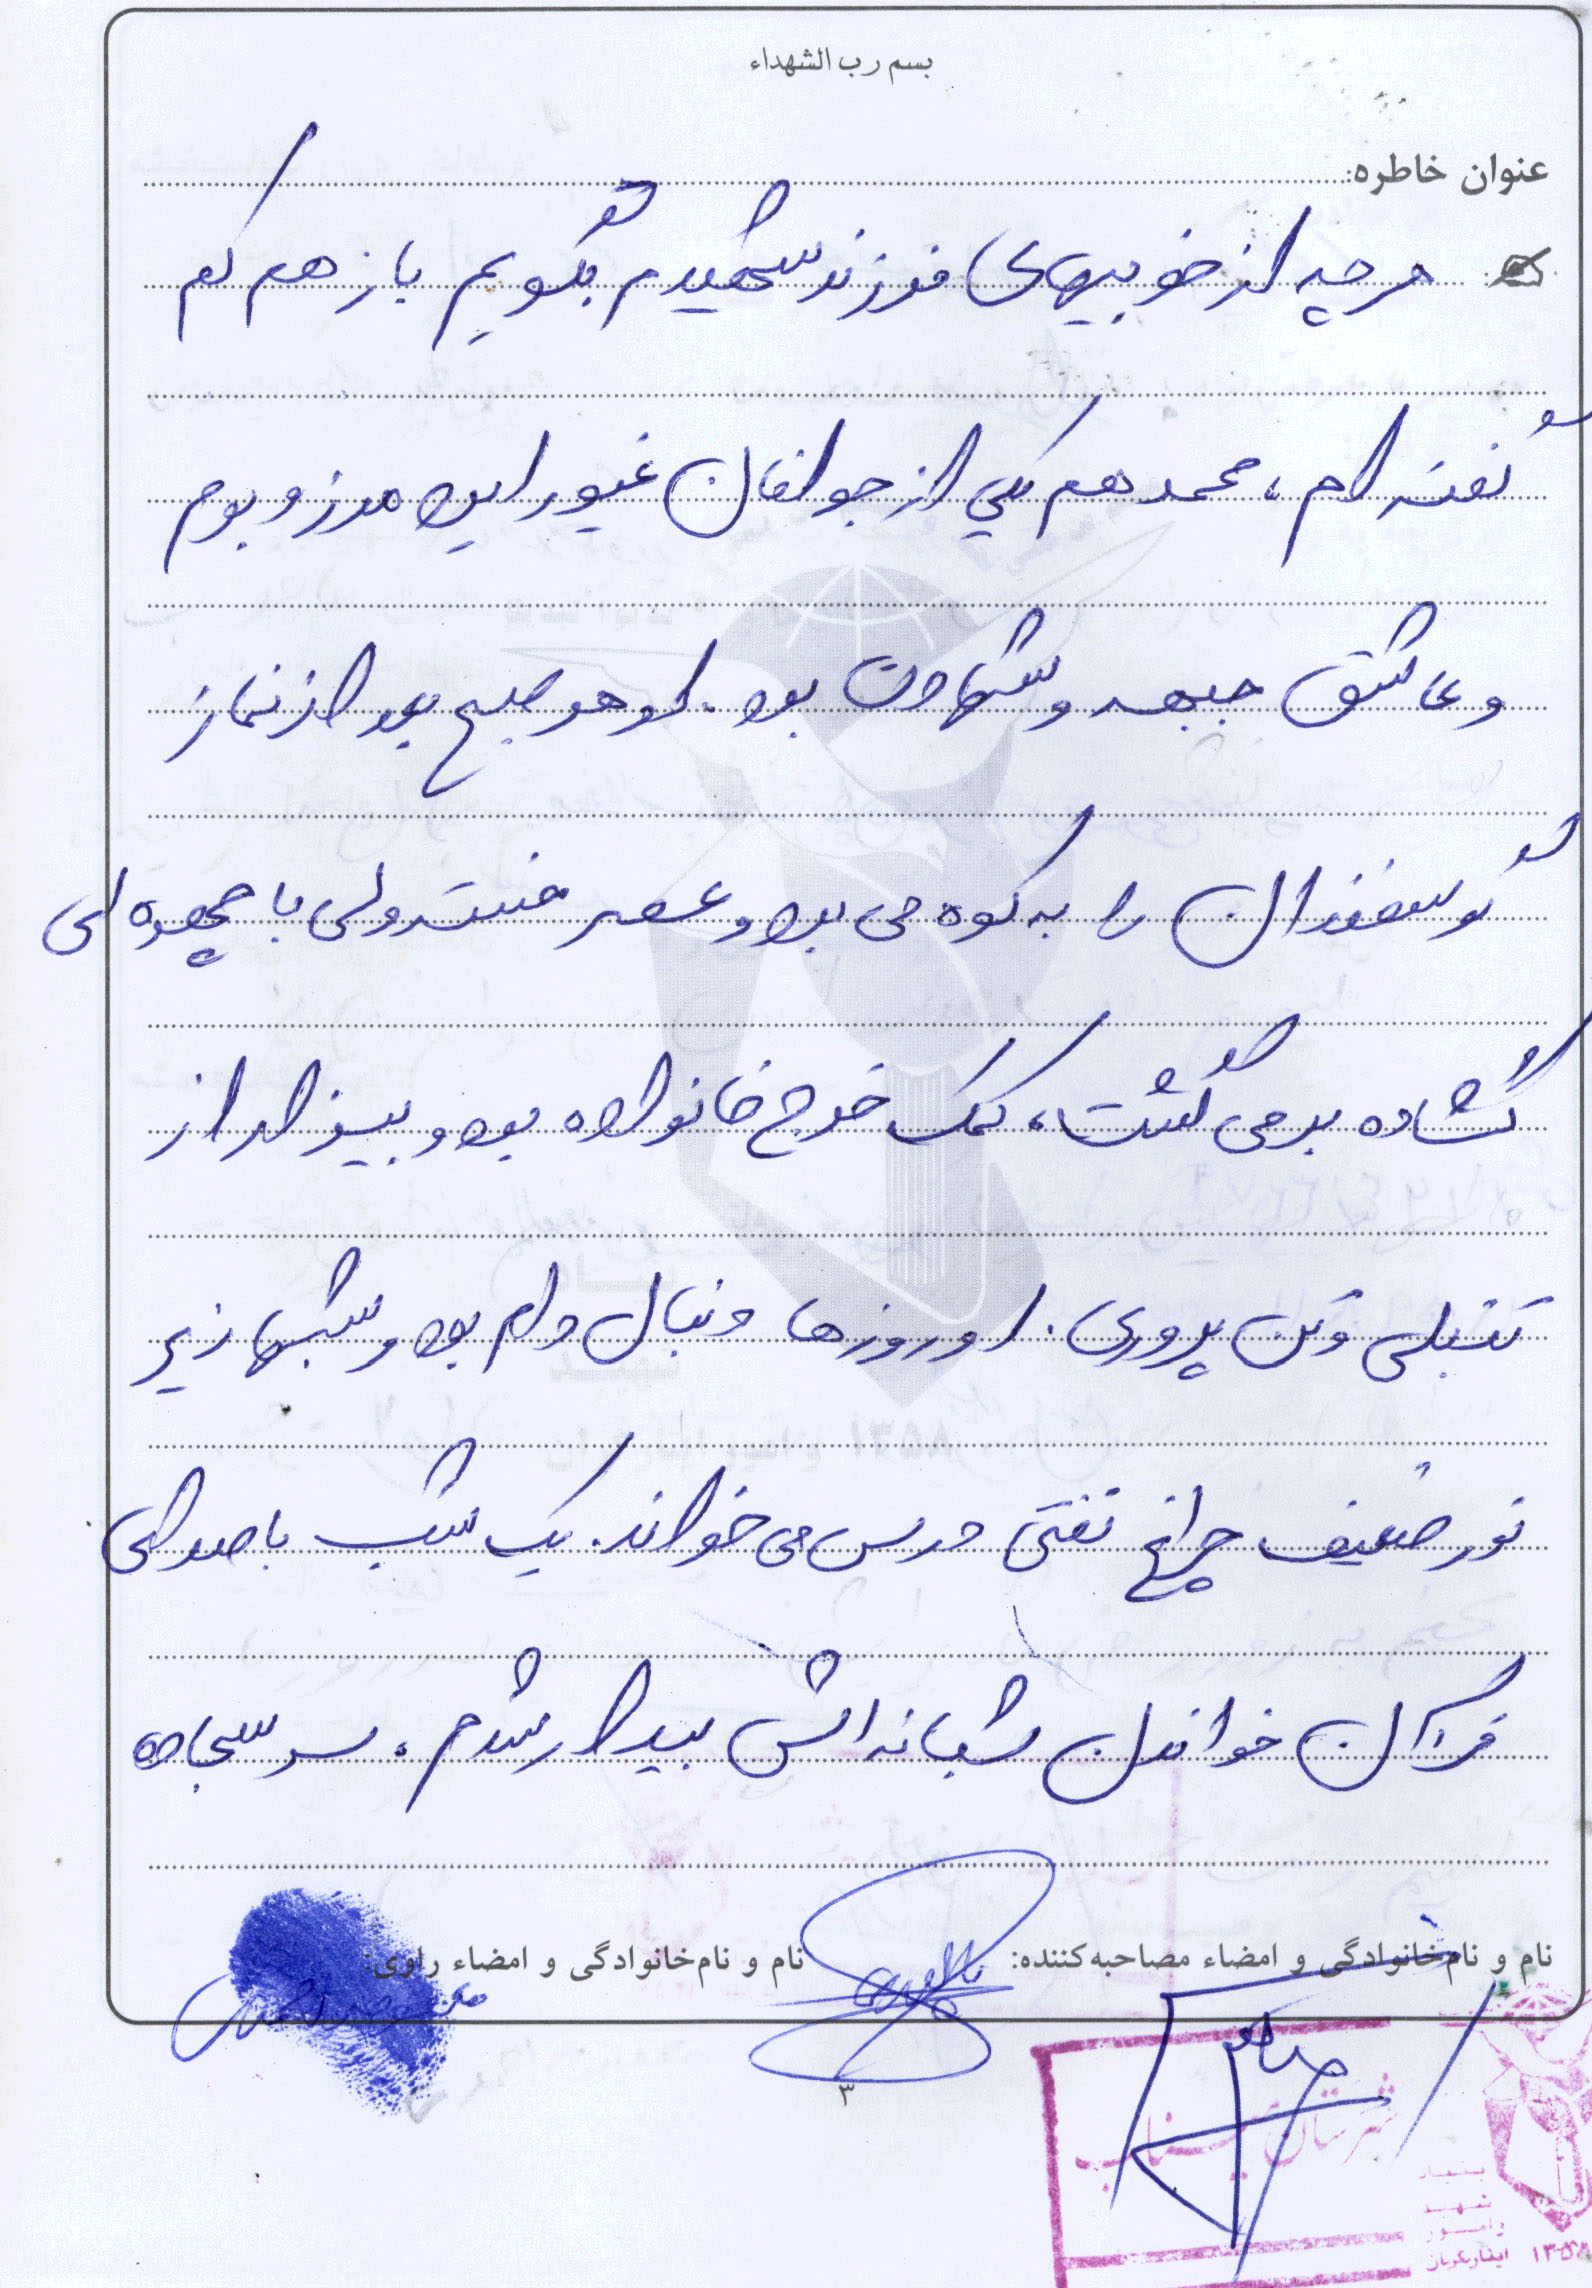 بسم رب الشهداء
عنوان خاطره:
هر چه از خوبیهای فرزند شهیدم بگویم باز هم کم
گفته ام، محمد هم یکی از جوانان غیور این مرز و بوم
و عاشق جبهه و شهادت بود. او هر صبح بعد از نماز
گوسفندان را به کوه می برد و عصر خسته ولی با چهره ای
گشاده برمی گشت، کمک خرج خانواده بود و بیزار از
تنبلی و تن پروری. او روزها دنبال دام بود و شبها زیر
نور ضعیف چراغ نفتی درس می خواند. یک شب با صدای
قرآن خواندن شبانه اش بیدار شدم. سر سجاده
نام و نام‌خانوادگی و امضاء مصاحبه‌کننده:
نام و نام‌خانوادگی و امضاء راوی:
۳
شهرستان
بنیاد
شهید
و امور
ایثارگران
۱۳۵۸